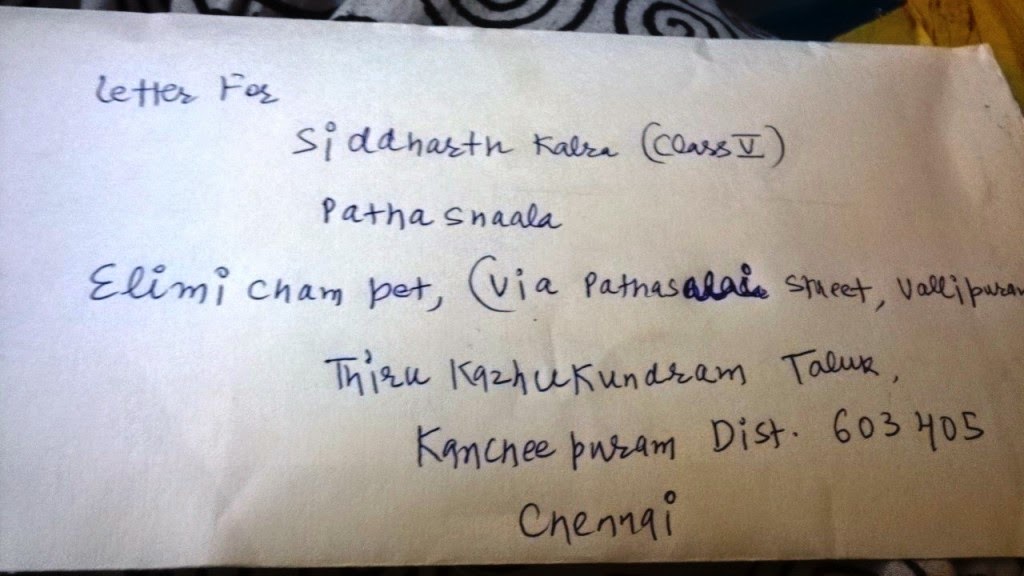 Letter For
Siddharth Kalra (Class V)
Pathashaala
Elimichampet, (Via Pathasalai Street, Vallipuram
Thirukazhukundram Taluk,
Kancheepuram Dist. 603 405
Chennai